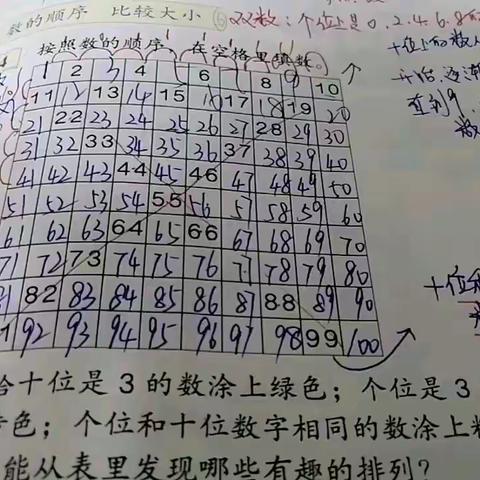 数的顺序 比较大小 ⑥双数:个位上是0.2.4.6.8的
按照数的顺序,在空格里填数。
十位上的数
直到9
1 2 3 4 6 8 9 10
11 12 13 14 15 16 17 18 19 20
21 22 23 24 25 26 27 28 29 30
31 32 33 34 35 36 37 38 39 40
41 42 43 44 45 46 47 48 49 50
51 52 53 54 55 56 57 58 59 60
61 62 63 64 65 66 67 68 69 70
71 72 73 74 75 76 77 78 79 80
82 83 84 85 86 87 88 89 90
92 93 94 95 96 97 98 99 100
十位和
给十位是 3 的数涂上绿色;个位是 3
色;个位和十位数字相同的数涂上
能从表里发现哪些有趣的排列?